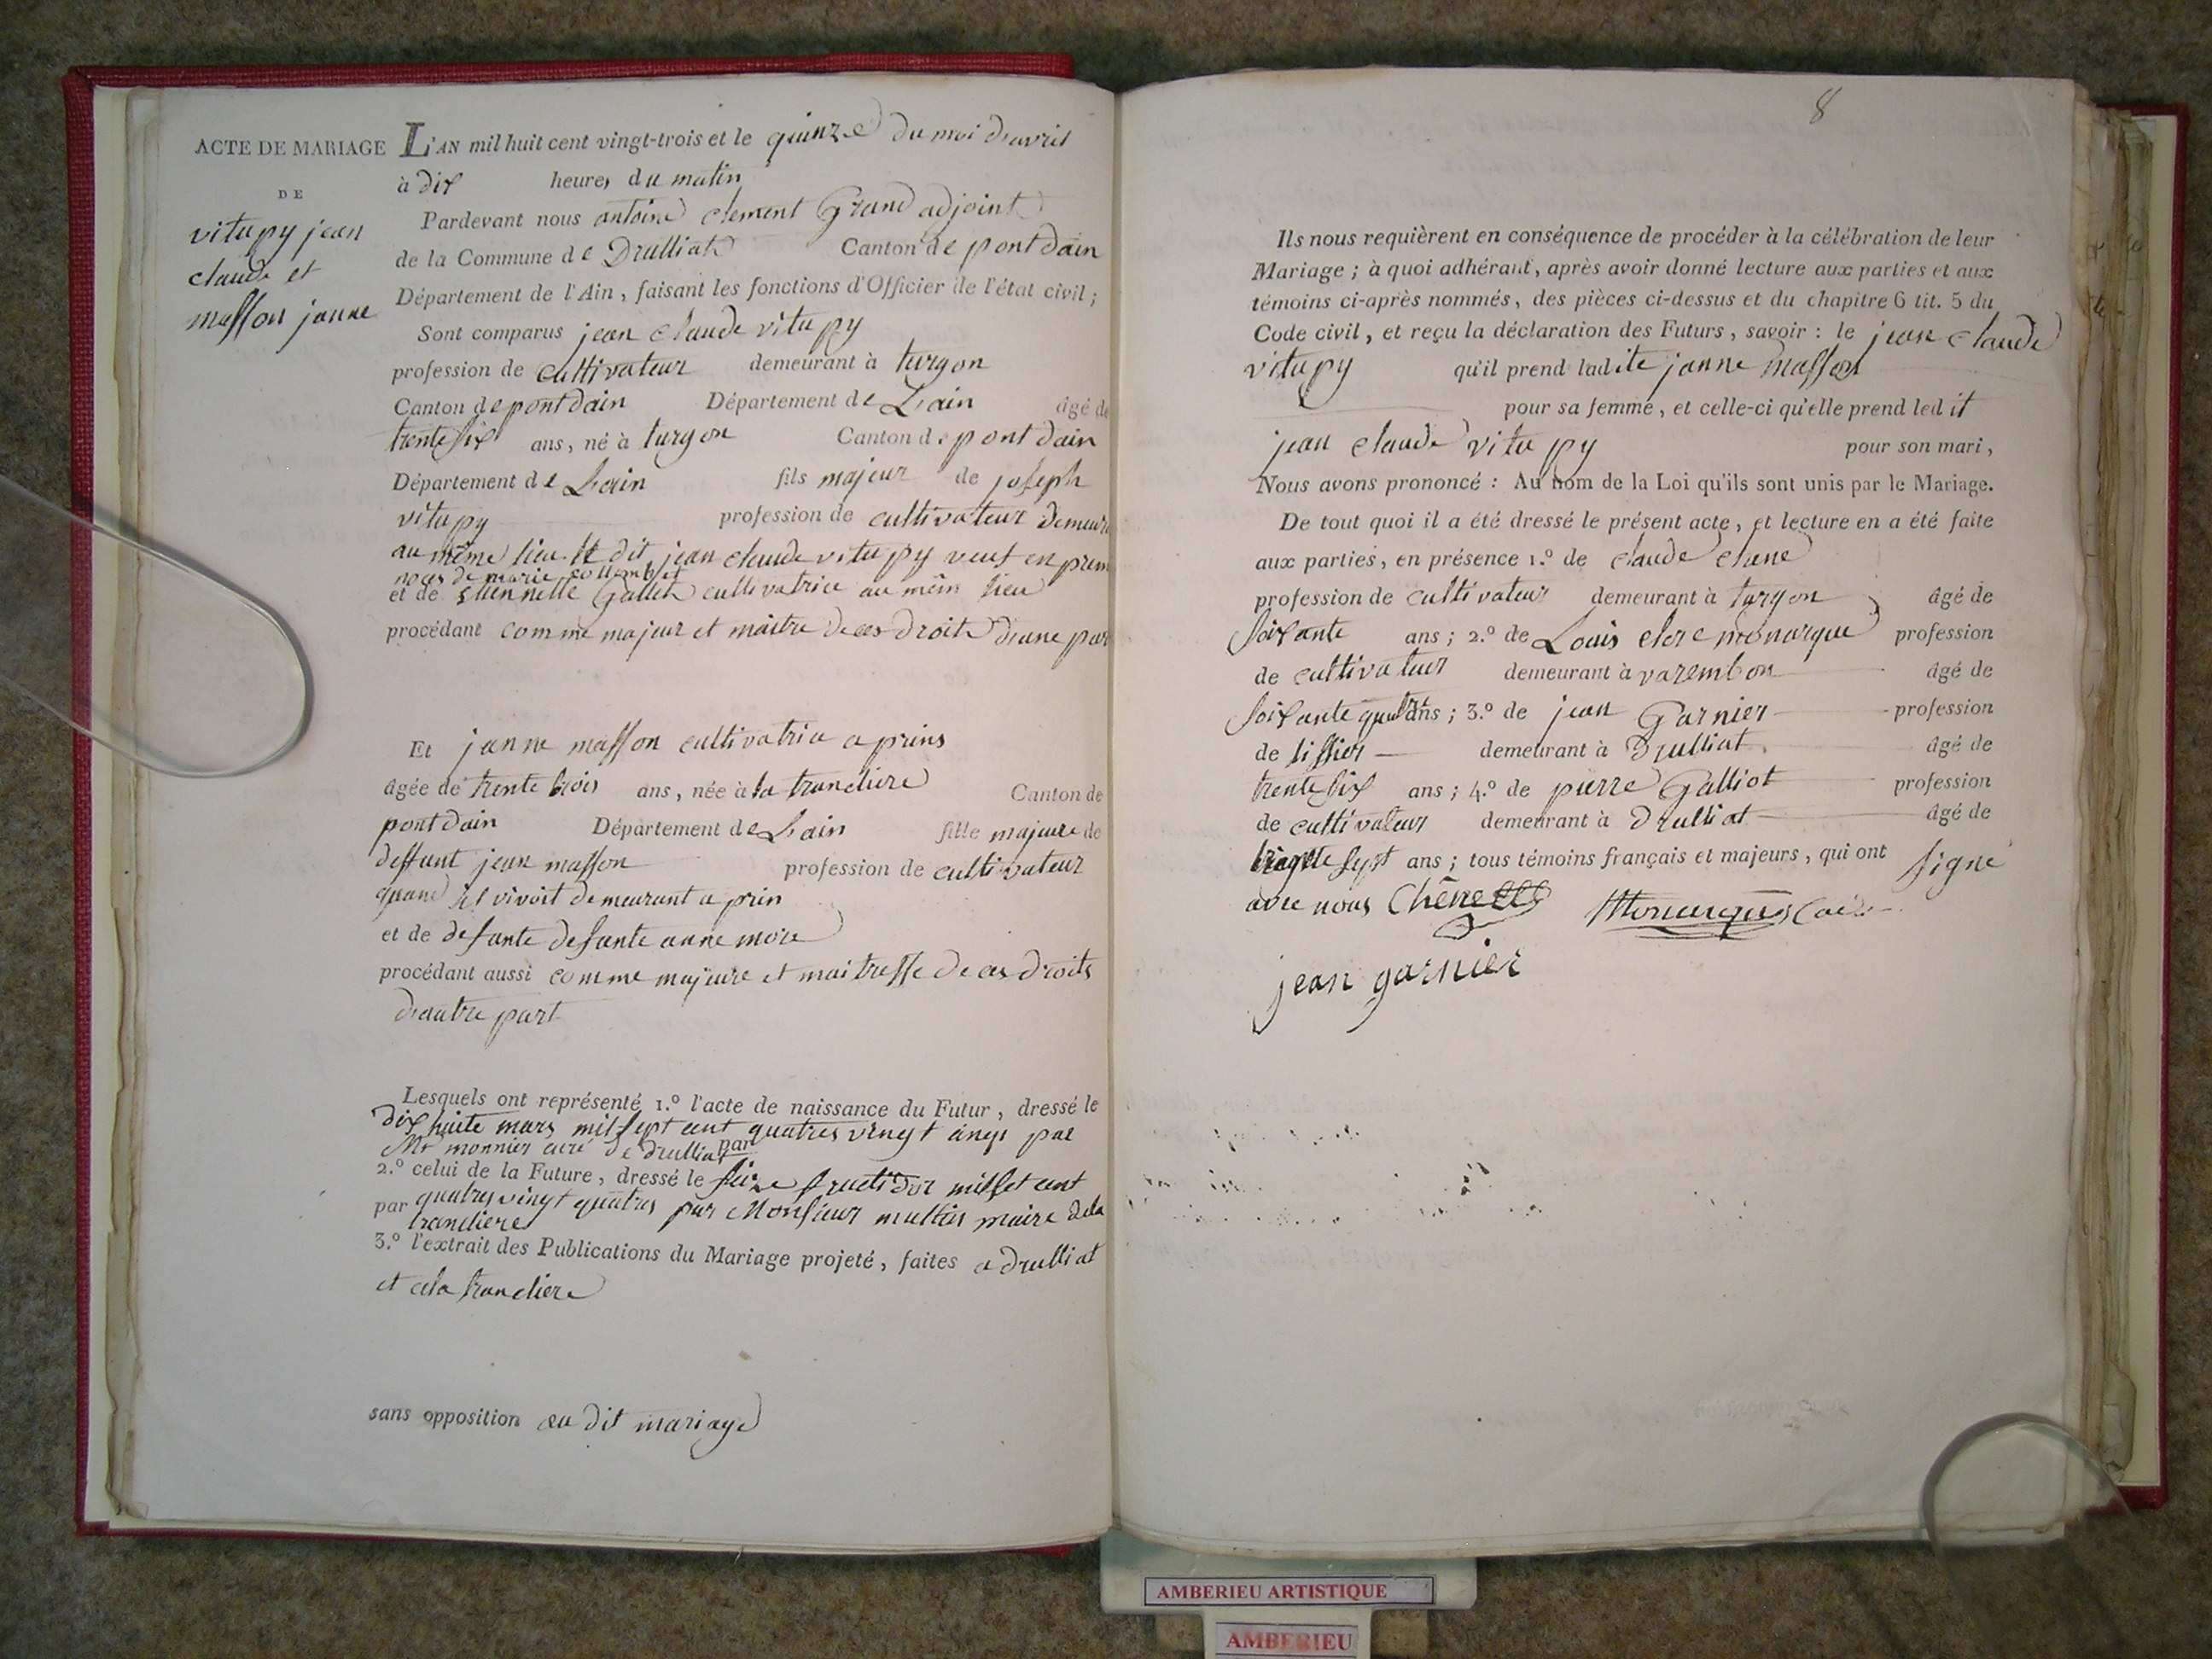 ACTE DE MARIAGE
DE
vitupy jean
claude et
masson janne
L'AN mil huit cent vingt-trois et le quinze du moi d'avril
à dix heures du matin
Pardevant nous antoine clement Grand adjoint
de la Commune de Drulliat Canton de pont dain
Département de l'Ain, faisant les fonctions d'Officier de l'état civil;
Sont comparus jean claude vitupy
profession de cultivateur demeurant à turgon
Canton de pont dain Département de Lain âgé de
trente six ans, né à turgon Canton de pont dain
Département de Lain fils majeur de joseph
vitupy profession de cultivateur demeura
au même lieu le dit jean claude vitupy veuf en prem
noces de marie
et de Galleh cultivatrice au mêm lieu
procédant comme majeur et maitre de ces droits d'une par
Et janne masson cultivatrice a prins
âgée de trente trois ans, née à la trancliere Canton de
pont dain Département de Lain fille majeure de
deffunt jean masson profession de cultivateur
quand il vivoit demeurant a prin
et de defunte defunte anne more
procédant aussi comme majeure et maitresse de ces droits
d'autre part
Lesquels ont représenté 1.º l'acte de naissance du Futur, dressé le
dix huite mars mil sept cent quatres vingt cinqs par
Mr monnier curé de drulliat par
2.º celui de la Future, dressé le seize fructidor mil set cent
par quatres vingt quatres par Monsieur maire dela
trancliere
3.º l'extrait des Publications du Mariage projeté, faites a drulliat
et ala trancliere
sans opposition au dit mariage
8
Ils nous requièrent en conséquence de procéder à la célébration de leur
Mariage; à quoi adhérant, après avoir donné lecture aux parties et aux
témoins ci-après nommés, des pièces ci-dessus et du chapitre 6 tit. 5 du
Code civil, et reçu la déclaration des Futurs, savoir: le jean claude
vitupy qu'il prend ladite janne masson
pour sa femme, et celle-ci qu'elle prend ledit
jean claude vitupy pour son mari,
Nous avons prononcé: Au nom de la Loi qu'ils sont unis par le Mariage.
De tout quoi il a été dressé le présent acte, et lecture en a été faite
aux parties, en présence 1.º de claude chene
profession de cultivateur demeurant à turgon âgé de
soixante ans; 2.º de Louis clerc monarque profession
de cultivateur demeurant à varembon âgé de
soixante quatre ans; 3.º de jean Garnier profession
de tissier demeurant à Drulliat âgé de
trente six ans; 4.º de pierre Galliot profession
de cultivateur demeurant à drulliat âgé de
sept ans; tous témoins français et majeurs, qui ont signé
avec nous Chene Monarque
jean garnier
AMBERIEU ARTISTIQUE
AMBERIEU